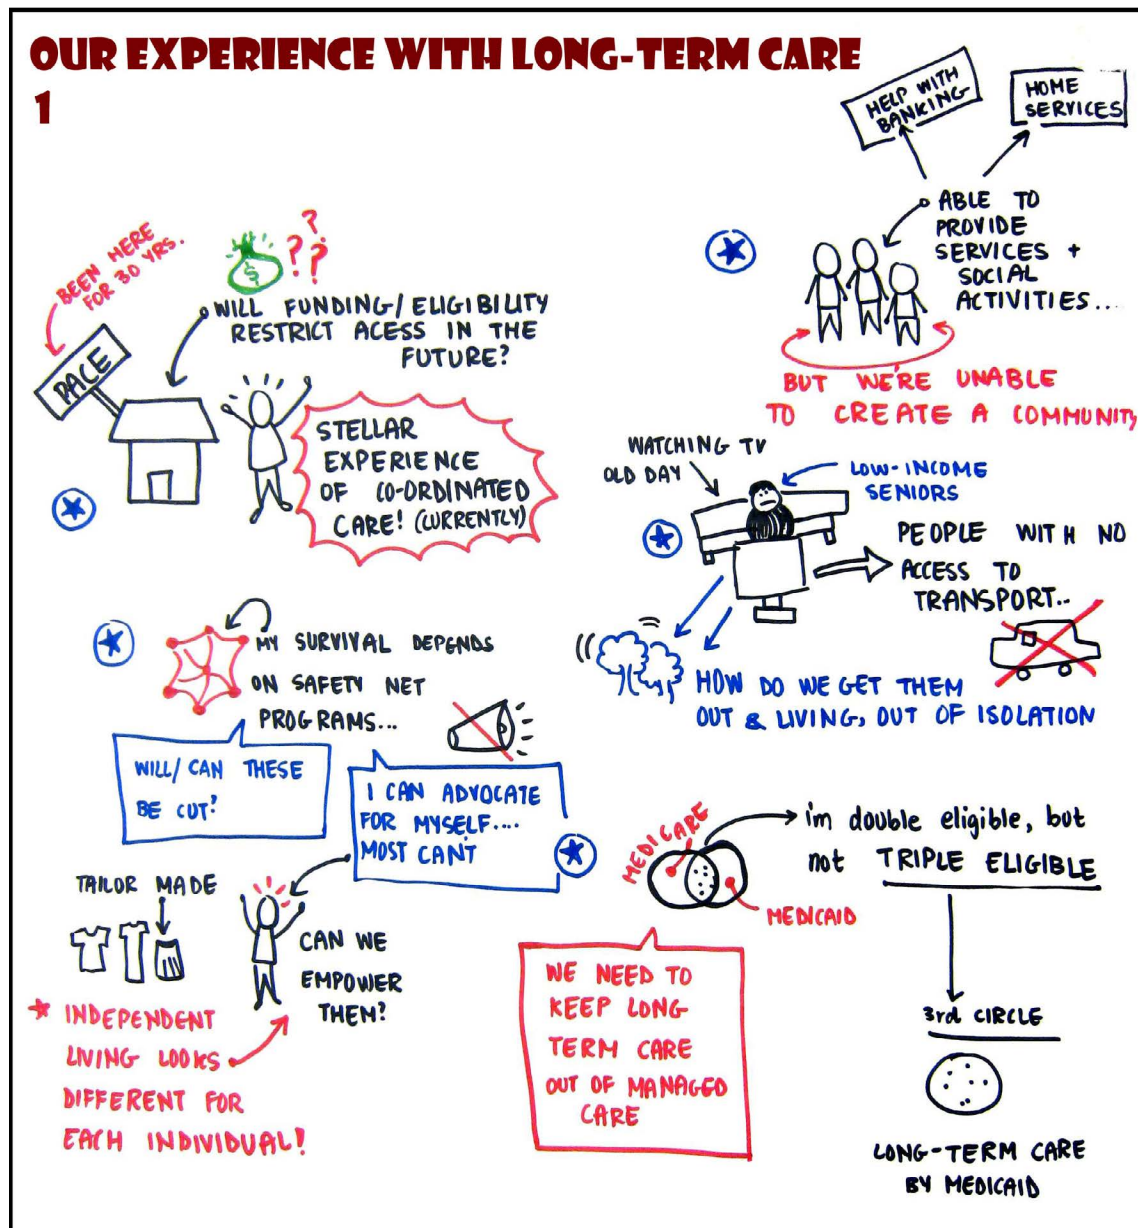 OUR EXPERIENCE WITH LONG-TERM CARE
1
HELP WITH
BANKING
HOME
SERVICES
ABLE TO
PROVIDE
SERVICES +
SOCIAL
ACTIVITIES...
BUT WE'RE UNABLE
TO CREATE A COMMUNITY
BEEN HERE
FOR 30 YRS.
PACE
$
???
WILL FUNDING/ELIGIBILITY
RESTRICT ACESS IN THE
FUTURE?
STELLAR
EXPERIENCE
OF CO-ORDINATED
CARE! (CURRENTLY)
WATCHING TV
OLD DAY
LOW-INCOME
SENIORS
PEOPLE WITH NO
ACCESS TO
TRANSPORT..
HOW DO WE GET THEM
OUT & LIVING, OUT OF ISOLATION
MY SURVIVAL DEPENDS
ON SAFETY NET
PROGRAMS...
WILL/CAN THESE
BE CUT?
I CAN ADVOCATE
FOR MYSELF....
MOST CAN'T
TAILOR MADE
CAN WE
EMPOWER
THEM?
* INDEPENDENT
LIVING LOOKS
DIFFERENT FOR
EACH INDIVIDUAL!
MEDICARE
MEDICAID
i'm double eligible, but
not TRIPLE ELIGIBLE
WE NEED TO
KEEP LONG
TERM CARE
OUT OF MANAGED
CARE
3rd CIRCLE
LONG-TERM CARE
BY MEDICAID